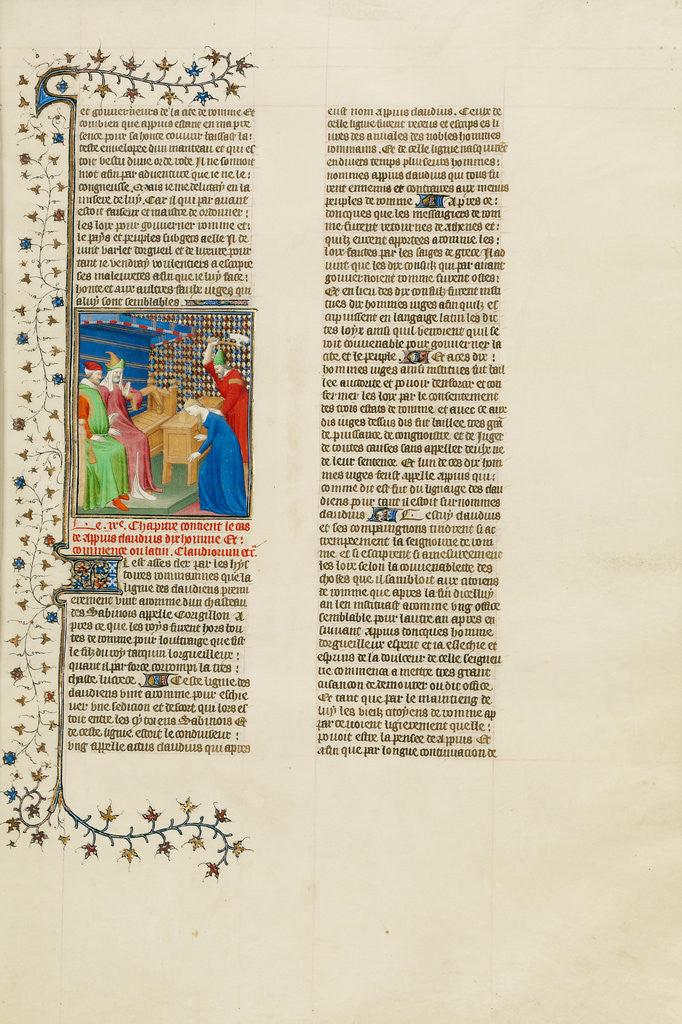 et gouverneurs de la cite de romme Et
combien que appius estant en ma pre
sence pour sa honte couvrir baissast la
teste envelopee dun manteau et qui es
toit vestu dune orde robe Il ne sonnoit
mot afin par adventure que ie ne le :
congneusse. Mais ie me delitay en la
misere de luy. Car il qui par avant
estoit faiseur et maistre de ordonner :
les loix pour gouverner romme et :
le pays et peuples subgetz a elle Il de
vint varlet dorgueil et de luxure pour
tant ie vendray voulentiers a escripre
ses maleuretes afin que ie luy face :
honte et aux aultres faulx iuges qui
a luy sont semblables .
Le . ixe. Chapitre contient le cas
de appius claudius dix homme Et :
commence ou latin . Claudiorum etc.
Il est asses cler par les hys
toires rommaines que la
ligne des claudiens premi
erement vint a romme dun chasteau
des Sabinois appelle Corigillon A
pres ce que les roys furent hors bou
tes de romme pour loultraige que fist
le filz du roy tarquin lorgueilleux :
quant il par force corrompi la tres :
chaste lucrece . Ceste ligne des
claudiens vint a romme pour eschie
uer vne sedicion et descort qui lors es
toit entre les citoiens Sabinois Et
de ceste ligne estoit le conduiseur :
vng appelle actius claudius qui apres
eust nom appius claudius . Ceulx de
celle ligne furent receus et escrips es li
ures des annales des nobles hommes
rommains . Et de celle ligne nasquirent
en divers temps pluseurs hommes :
nommes appius claudius qui tous fu
rent ennemis et contraires aux menus
peuples de romme . Apres ce :
doncques que les messaigiers de rom
me furent retournes de athenes et :
quilz eurent apportees a romme les :
loix faictes par les saiges de grece Il ad
vint que les dix consulz qui par avant
gouvernoient romme furent ostes :
Et en lieu des dix consulz furent insti
tues dix hommes iuges afin quilz es
cripuissent en langaige latin les dic
tes loyx ainsi quil verroient quil se
roit couvenable pour gouverner la
cite et le peuple . Et a ces dix :
hommes iuges ainsi institues fut bail
lee auctorite et povoir densorer et con
fermer les loix par le consentement
des trois estatz de romme et avec ce aux
dis iuges dessus dis fut baillee tres grant
de puissance de congnoistre et de Juger
de toutes causes sans appeller deulx ne
de leur sentence Et lun de ces dix hom
mes iuges feust appelle appius qui :
comme dit est fut du lignaige des clau
diens pour tant il estoit surnommes
claudius . Cestuy claudius
et ses compaingnons tindrent si at
trempeement la seignourie de rom
me et si escripirent si amesureement
les loix selon la couvenablete des
choses que il sambloit aux citoiens
de romme que apres la fin dicelluy
an len instituast a romme vng office
semblable pour lautre an apres en
suivant Appius doncques homme
dorgueilleux esprit et ia aleschie et
espris de la doulceur de celle seignou
rie commenca a mettre tres grant
cusancon de demourer ou dit office
Et tant que par le maintieng de
luy les vieilz citoyens de romme ap
parcevoient ligierement quelle :
povoit estre la pensee de Appius Et
afin que par longue continuacion de